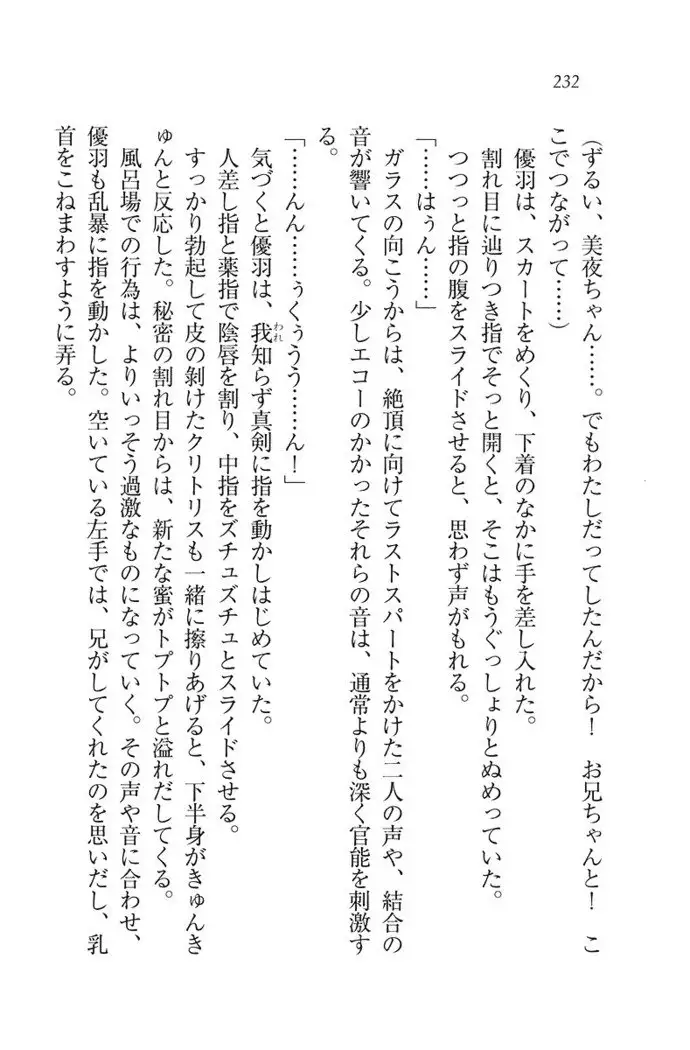 232
(ずるい、美夜ちゃん……。でもわたしだってしたんだから！　お兄ちゃんと！　こ
こでつながって……)
優羽は、スカートをめくり、下着のなかに手を差し入れた。
割れ目に辿りつき指でそっと開くと、そこはもうぐっしょりとぬめっていた。
つつっと指の腹をスライドさせると、思わず声がもれる。
「……はぅん……」
ガラスの向こうからは、絶頂に向けてラストスパートをかけた二人の声や、結合の
音が響いてくる。少しエコーのかかったそれらの音は、通常よりも深く官能を刺激す
る。
「……んん……ぅくぅうう……ん！」
気づくと優羽は、我知らず真剣に指を動かしはじめていた。
われ
人差し指と薬指で陰唇を割り、中指をズチュズチュとスライドさせる。
すっかり勃起して皮の剝けたクリトリスも一緒に擦りあげると、下半身がきゅんき
ゅんと反応した。秘密の割れ目からは、新たな蜜がトプトプと溢れだしてくる。
風呂場での行為は、よりいっそう過激なものになっていく。その声や音に合わせ、
優羽も乱暴に指を動かした。空いている左手では、兄がしてくれたのを思いだし、乳
首をこねまわすように弄る。